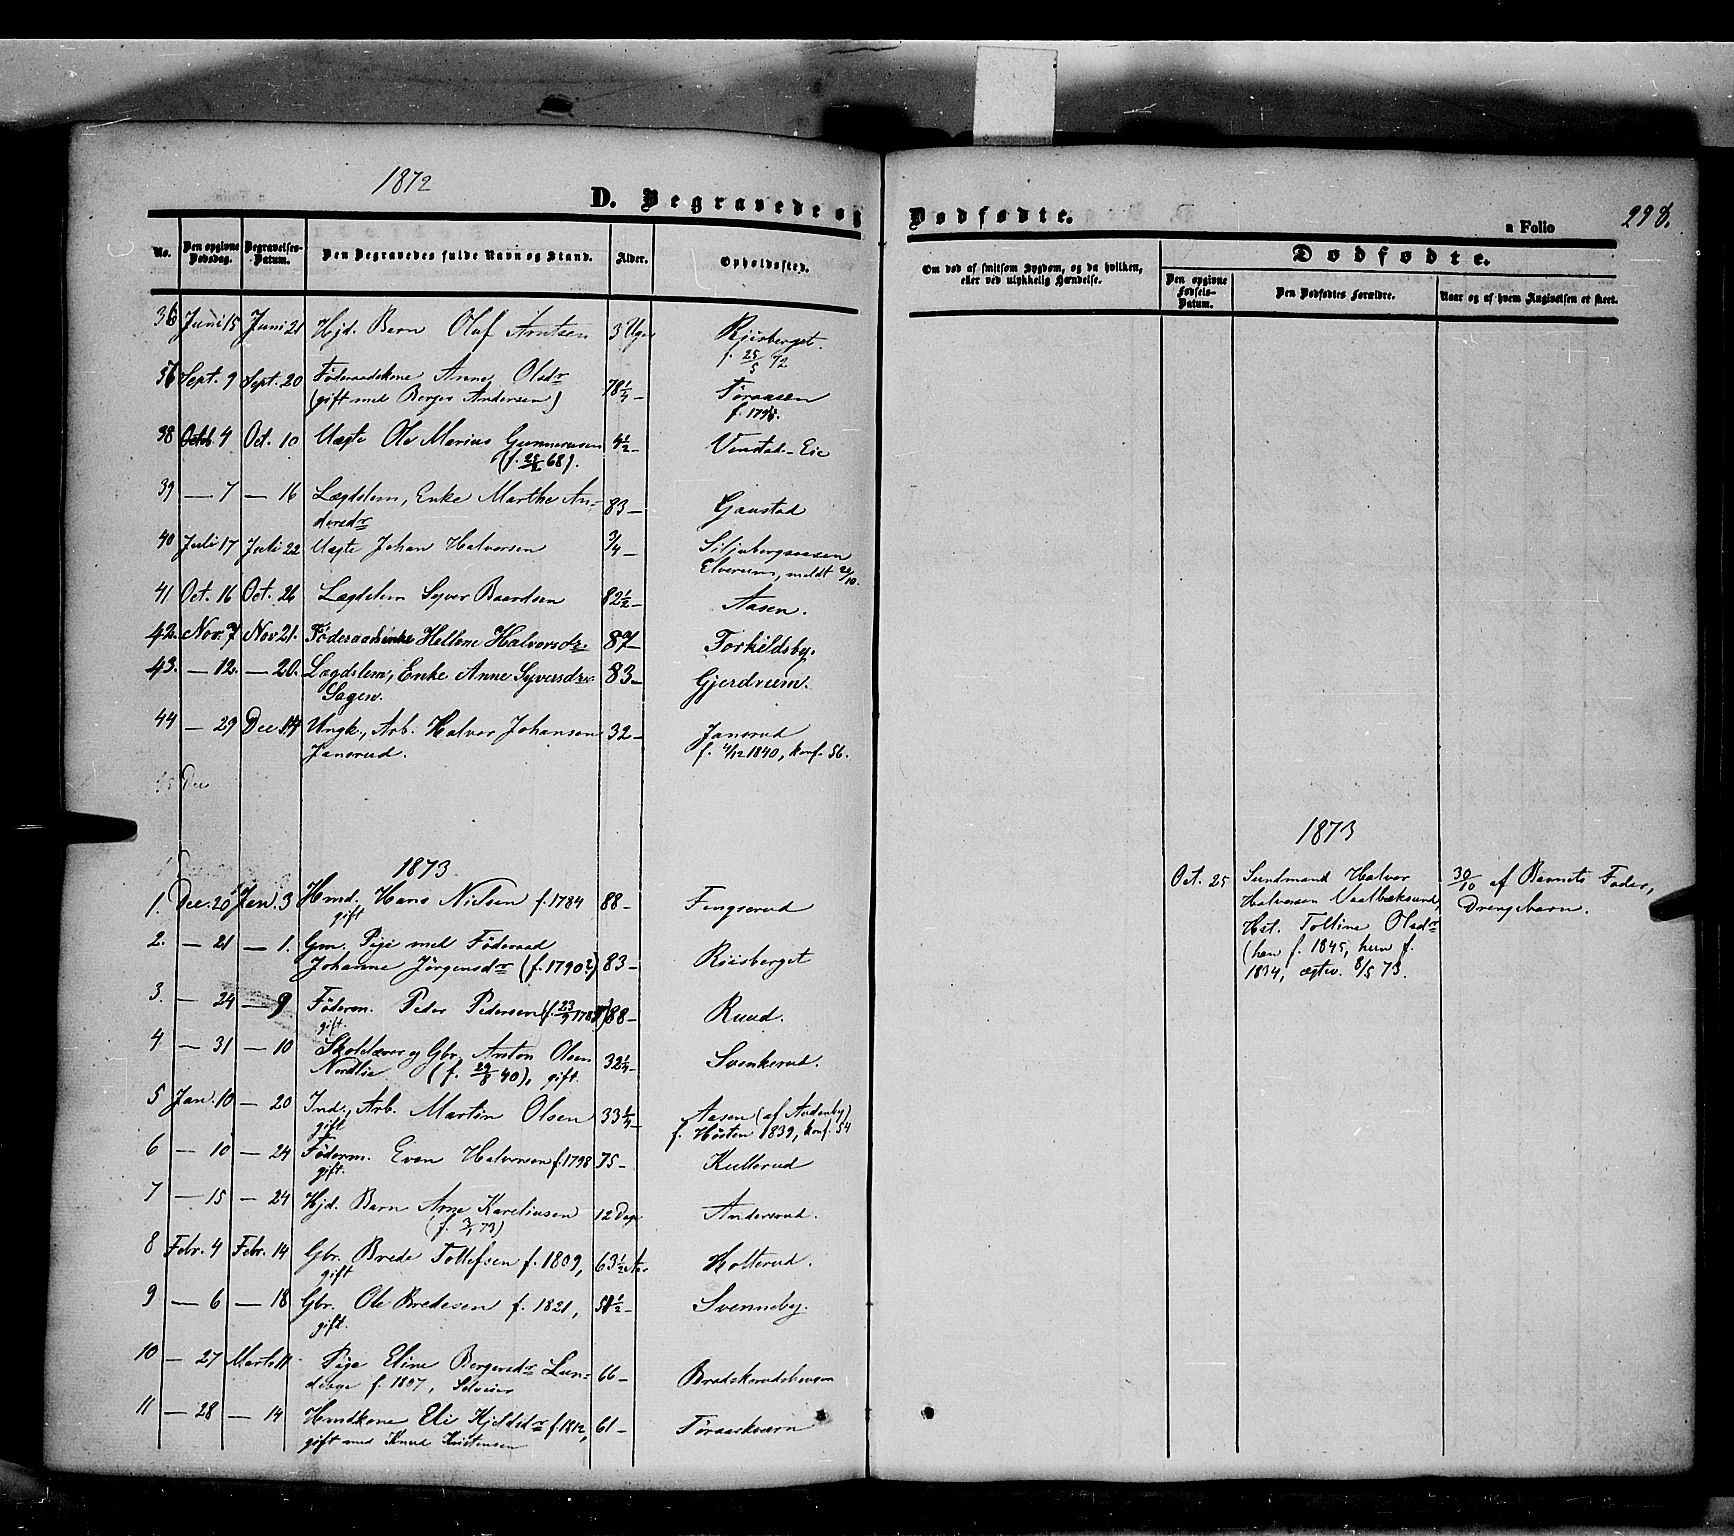 1872
D. Begravede og Dødfødte.
a Folio 298.
No. Den opgivne Dødsdag. Begravelses-Datum. Den Begravedes fulde Navn og Stand. Alder. Opholdssted.
Om død af smitsom Sygdom, og da hvilken, eller ved ulykkelig Hændelse.
Dødfødte.
Den opgivne Fødsels-Datum. Den Dødfødtes Forældre. Naar og af hvem Angivelsen er skeet.
36 Juni 15 Juni 21 Hjd. Barn Oluf Arntsen 3 Uger Riisberget.
f. 25/5 72
Sept. 9 Sept. 20 Føderaadskone Anne Olsdr 78 1/4 - Føraasen
(gift med Berger Andersen) f. 1794.
38 Octb 4 Oct. 10 Uægte Ole Marius Gunnerusen 4 1/2 - Vinstad-Eie
(f. 68).
39 — 7 — 16 Lægdslem, Enke Marthe An- 83 - Gaustad
dersdr
40 Juli 17 Juli 22 Uægte Johan Halvorsen 3/4 - Siljubergsaasen
Elverum, meldt 20/10.
41 Oct. 16 Oct. 26 Lægdslem Syver Baardsen 82 1/2 - Aasen.
42. Nov. 7 Nov 21. Føderaadsenke Hellene Halvorsdr. 87 - Torkildsby.
43. — 12. — 20. Lægdslem, Enke Anne Syversdr 83 - Gjerdrum.
Sagen.
44 — 29 Dec 14 Ungk., Arb. Halvor Johansen 32 - Jansrud
Jansrud. f. 4/12 1840, konf. 56.
45 Dec
1873
1. Dec. 20 Jan. 3 Hmd. Hans Nielsen f. 1784 88 - Fengserud
gift
2. — 21 — 1. Gm. Pige med Føderaad
Johanne Jørgensdr (f. 1790?) 83 - Riisberget
3. — 24 — 9 Føderm. Peder Pedersen (f. 23/9 1784) 88 - Ruud.
gift.
4 — 31 — 10 Skolelærer og Gbr. Anton Olsen 32 1/4 - Svenkerud.
Nordlie (f. 29/8 40), gift.
5 Jan. 10 — 20 Ind., Arb. Martin Olsen 33 1/4 - Aasen (af Audenby)
gift f. Høsten 1839, konf. 54
6 — 10 — 24 Føderm. Even Halvorsen f. 1798 75 - Kulterud
gift.
7 — 15 — 24 Hjd. Barn Arne Kareliusen 12 Dage Andersrud.
(f. 3/1 73)
8 Febr. 4 Febr. 14 Gbr. Brede Tollefsen f. 1809, 63 1/2 Aar Holterud.
gift
9 — 6 — 18 Gbr. Ole Bredesen f. 1821, 51 1/2 - Svenneby.
gift.
10 — 27 Marts 11 Pige Eline Bergersdr Lun- 66 - Bradskerudshaugen
dhage f. 1807, Selveier
11 — 28 — 14 Hmdkone Eli Kjeldsdr f. 1812, 61 - Føraaskværn
gift med Knud Kristensen
1873
Oct. 25 Sundmand Halvor 30/10 af Barnets Fader,
Halvorsen Vaalbæksund, Drengebarn.
Hst. Tolline Olsdr
(han f. 1845, hun f.
1834, ægtev. 8/5 73.